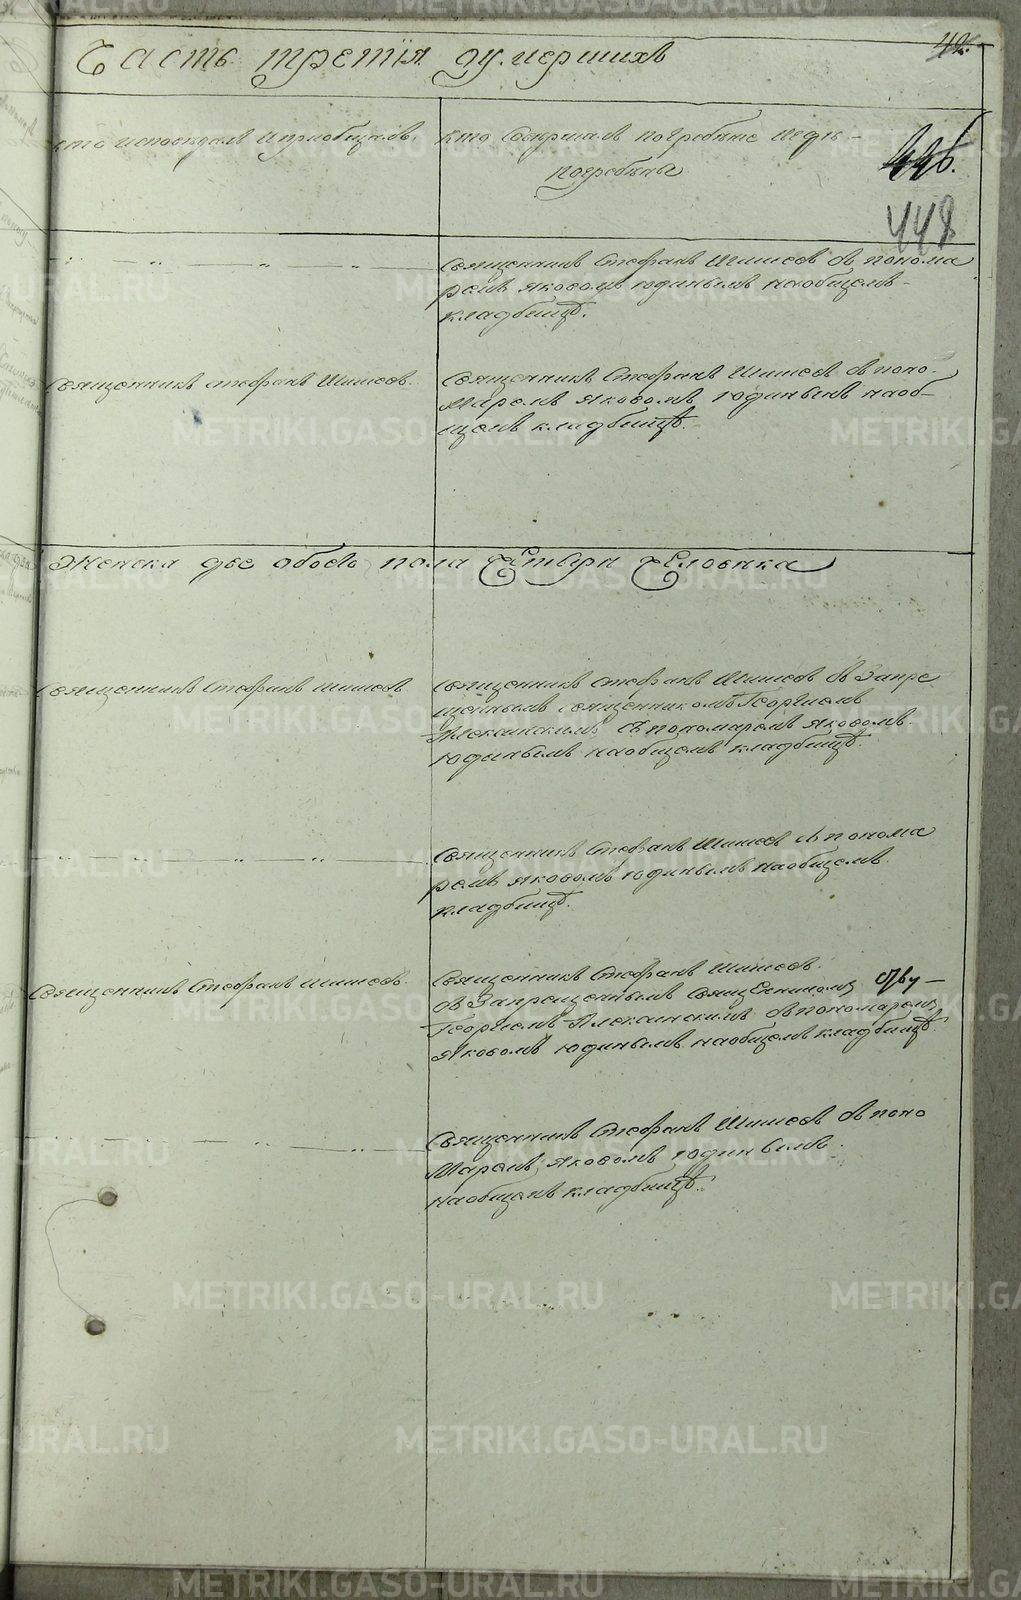 Часть третія оумершихъ
42.
кто исповедалъ и приобщалъ.
Кто совершалъ погребѣние и гдѣ
погребены
446.
448
Священникъ Стефанъ Шишовъ съ понома
ремъ Яковомъ Юдинымъ на общемъ
кладбищѣ.
Священникъ Стефанъ Шишовъ.
Священникъ Стефанъ Шишовъ съ поно-
маремъ Яковомъ Юдинымъ на об-
щемъ кладбищѣ.
Женска две обоего пола четыри человека
Священникъ Стефанъ Шишовъ
Священникъ Стефанъ Шишовъ съ Запре
щеннымъ священникомъ Георгиемъ
Алексинскимъ съ пономаремъ Яковомъ
Юдинымъ на общемъ кладбищѣ.
Священникъ Стефанъ Шишовъ съ понома
ремъ Яковомъ Юдинымъ на общемъ
кладбищѣ.
Священникъ Стефанъ Шишовъ
Священникъ Стефанъ Шишовъ
съ Запрещеннымъ священникомъ
Георгиемъ Алексинскимъ съ пономаремъ
Яковомъ Юдинымъ на общемъ кладбищѣ
Священникъ Стефанъ Шишовъ съ поно
маремъ Яковомъ Юдинымъ
на общемъ кладбищѣ.
METRIKI.GASO-URAL.RU